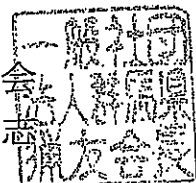 一般社団
法人群馬県
猟友会長
会志